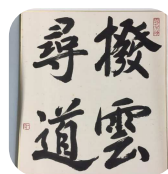 撥雲
尋道